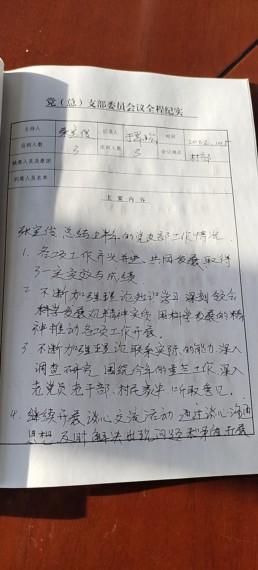 党（总）支部委员会议全程纪实
主持人 记录人 时间
应到人数 3 实到人数 3 会议地点
缺席人员及原因
列席人员名单
主要内容
总结上半年的党支部工作情况
1、各项工作齐头并进、共同发展、取得
了一定实效与成绩
2、不断加强理论知识学习 深刻领会
科学发展观精神实质 用科学发展的精
神推动各项工作开展.
3、不断加强理论联系实际的能力 深入
调查研究 围绕今年的重点工作 深入
老党员、老干部、村民家中 听取意见.
4、继续开展谈心交流活动 通过谈心沟通
思想 及时解决出现问题